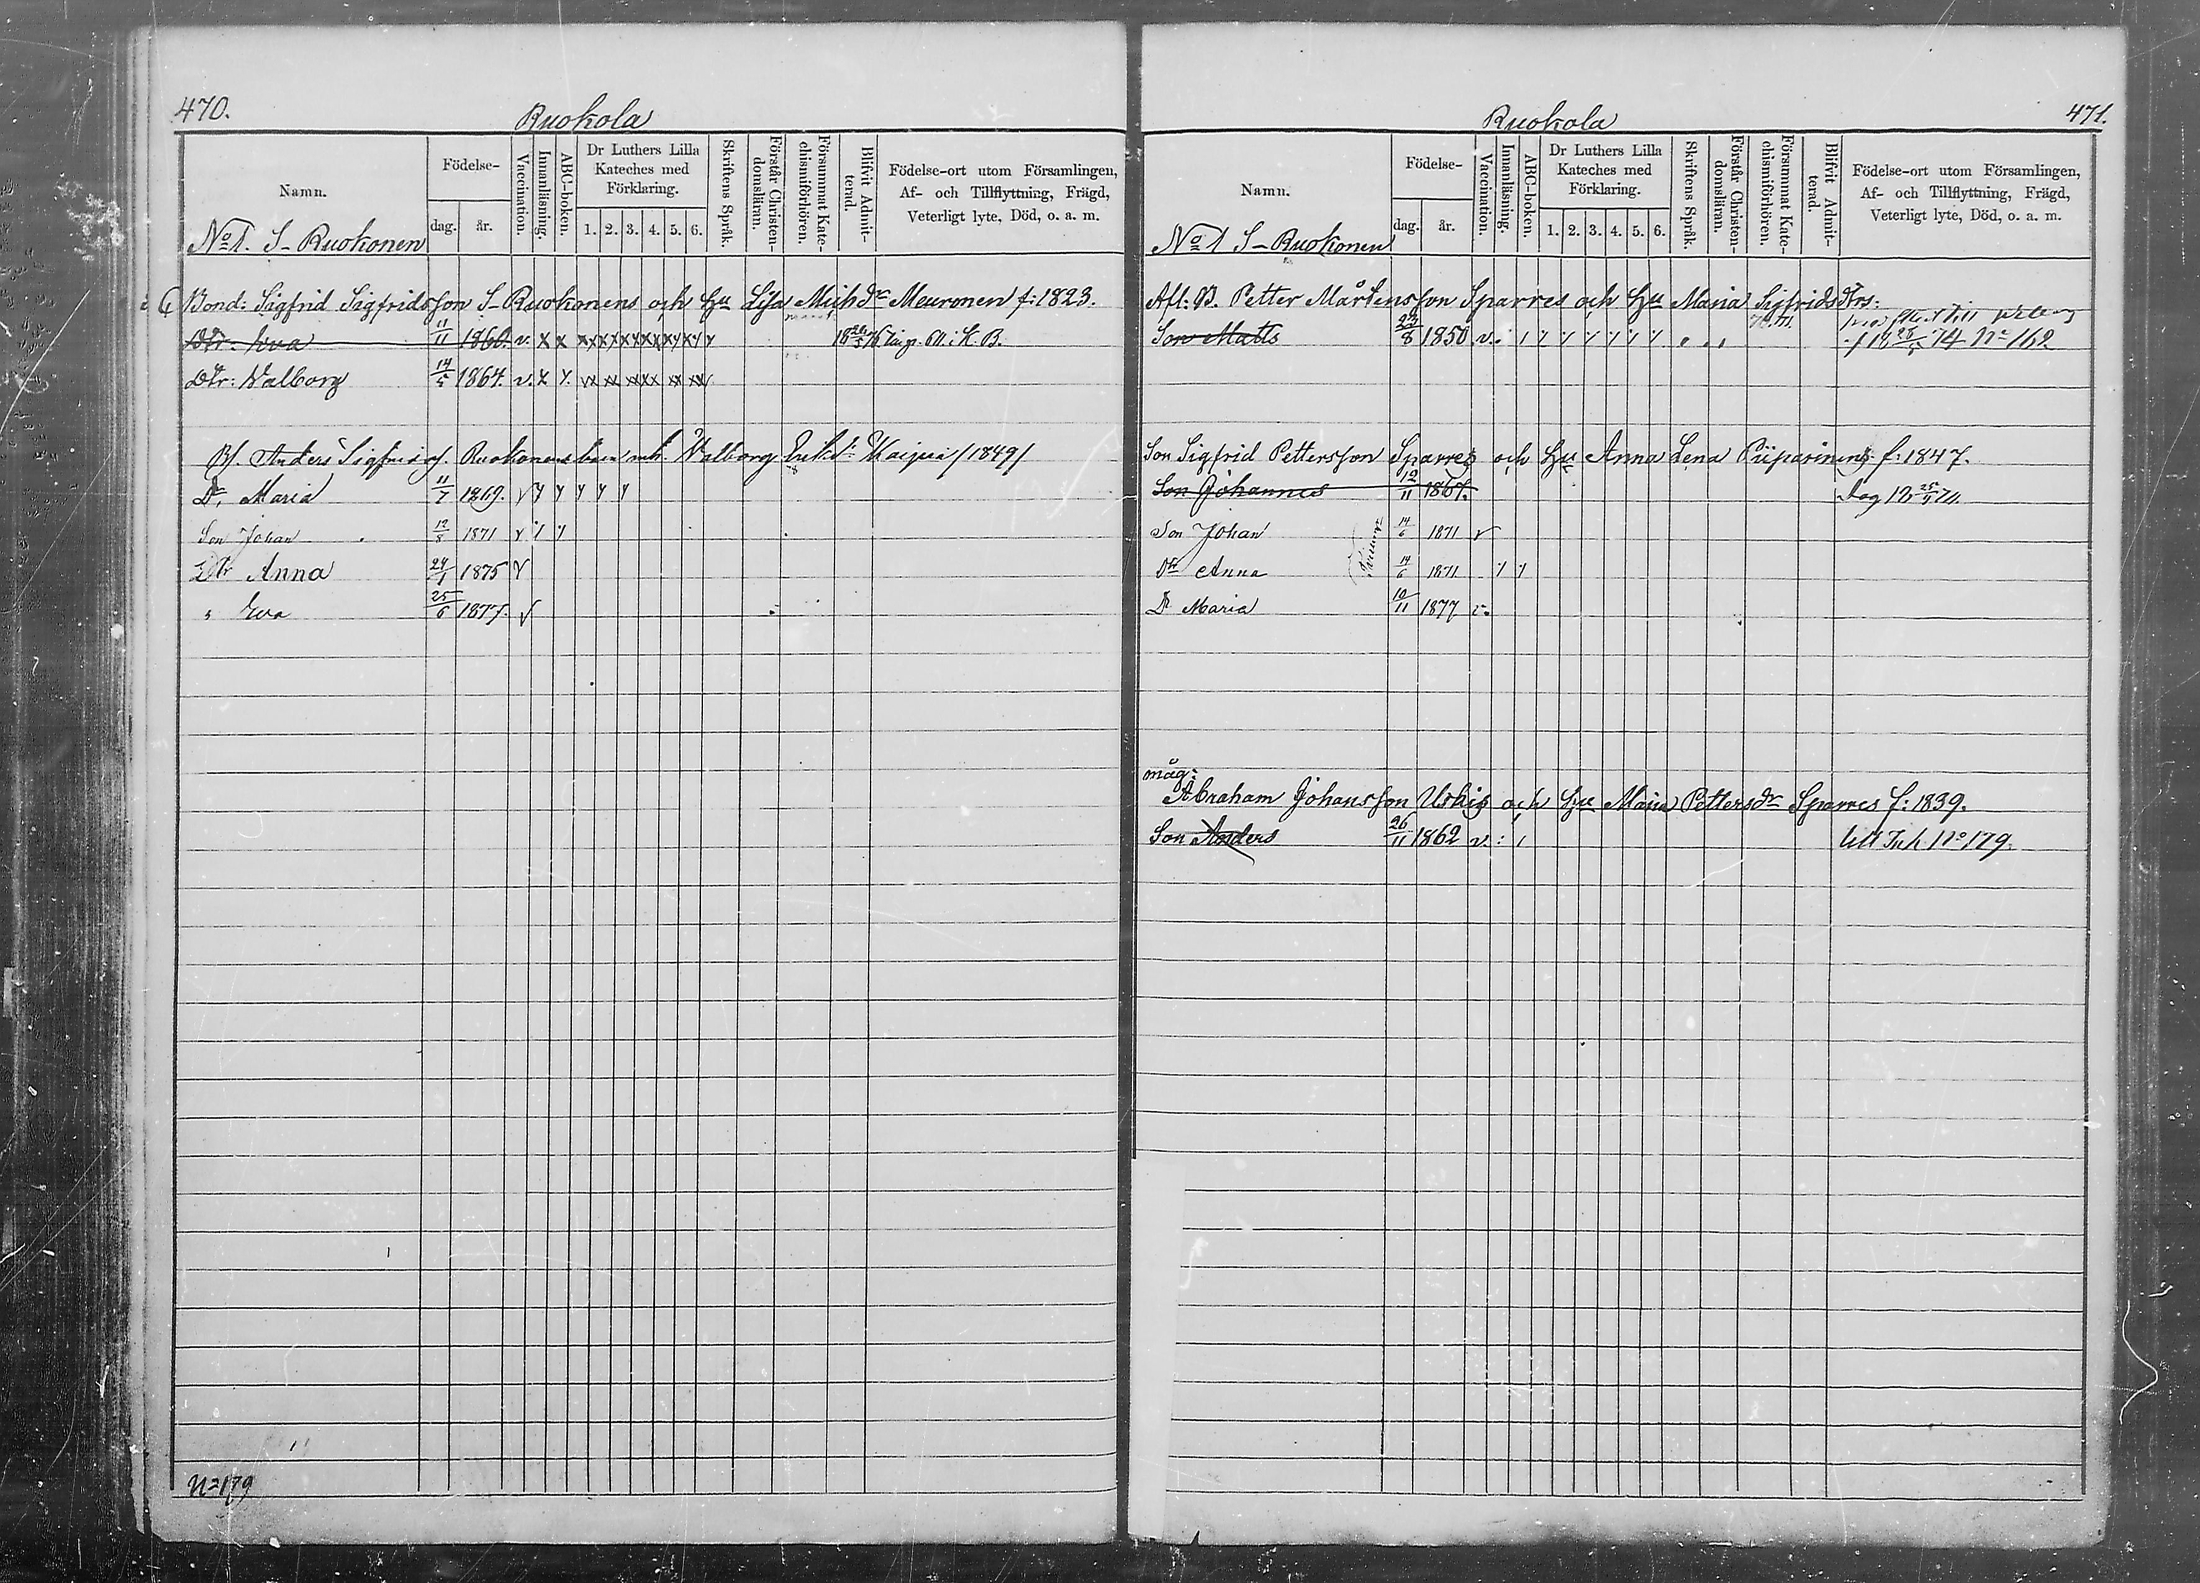 470.
Ruokola
Namn.
Födelse-
dag.
år.
Vaccination.
Innanläsning.
ABC-boken.
Dr Luthers Lilla
Kateches med
Förklaring.
1. 2. 3. 4. 5. 6.
Skriftens Språk.
Förstår Christen-
domsläran.
Försummat Kate-
chismiförhören.
Blifvit Admit-
terad.
Födelse-ort utom Församlingen,
Af- och Tillflyttning, Frägd,
Veterligt lyte, Död, o. a. m.
No 1. S- Ruokonen
Bond: Sigfrid Sigfridsson S- Ruokonens och Hu Lisa Michdr Meuronen f: 1823.
Dtr. Eva 11/11 1860. v. x x
Dtr: Walborg 14/5 1864. v. x x
Anders Sigfrids. Ruokonens barn Walborg /1849/
Dr. Maria 11/7 1869. v
Son Johan 12/8 1871
Dtr Anna 24/1 1875 v
" Eva 25/6 1877. v
No 179
471.
Ruokola
Namn.
Födelse-
dag.
år.
Vaccination.
Innanläsning.
ABC-boken.
Dr Luthers Lilla
Kateches med
Förklaring.
1. 2. 3. 4. 5. 6.
Skriftens Språk.
Förstår Christen-
domsläran.
Försummat Kate-
chismiförhören.
Blifvit Admit-
terad.
Födelse-ort utom Församlingen,
Af- och Tillflyttning, Frägd,
Veterligt lyte, Död, o. a. m.
No 1 S- Ruokonen
Afl: B. Petter Mårtensson Sparres och Hu Maria Sigfridsdtrs:
Son Matts 1850 v. No 162
Son Sigfrid Pettersson Sparres och Hu Anna Lena Piiparinens f: 1847.
Son Johannes 12/11 1867.
Son Johan 14/6 1871 v
Dtr Anna 14/6 1871
Dr Maria 10/11 1877 v.
måg:
Abraham Johansson Uskis och Hu Maria Pettersdr Sparres f: 1839.
Son Anders 26/11 1862 v. till Inh. No 179.